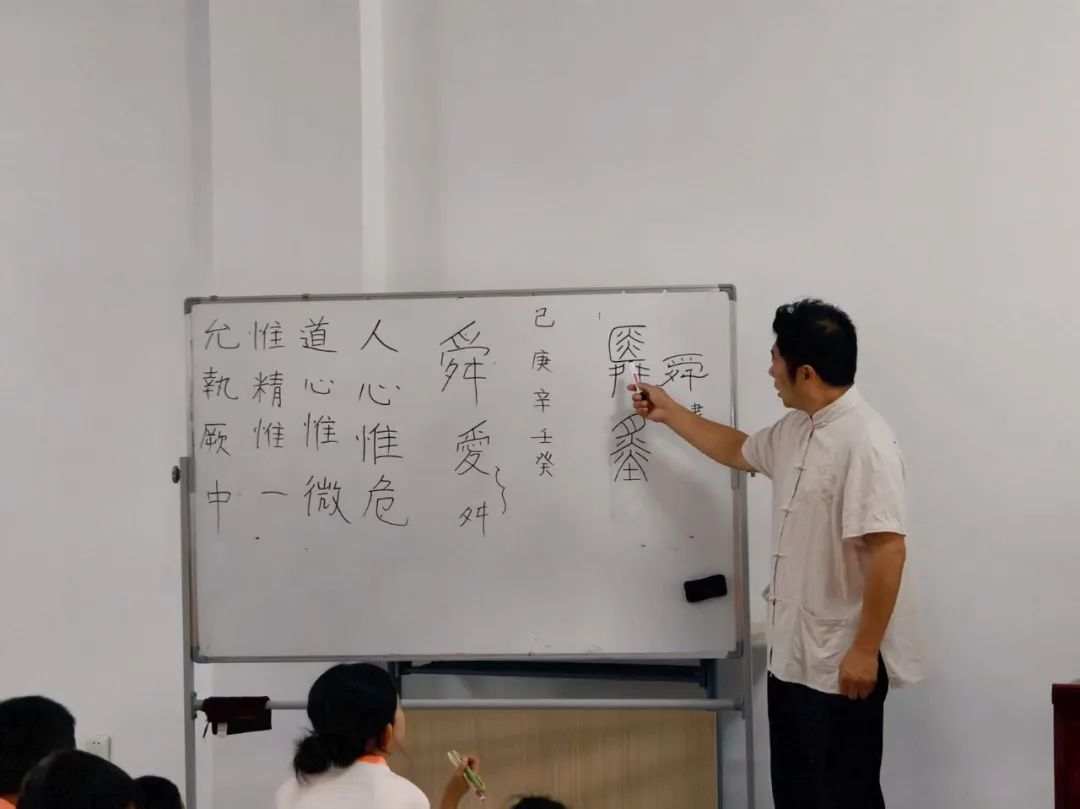 舜
舜
己庚辛壬癸
舜愛
舛
人心惟危
道心惟微
惟精惟一
允執厥中